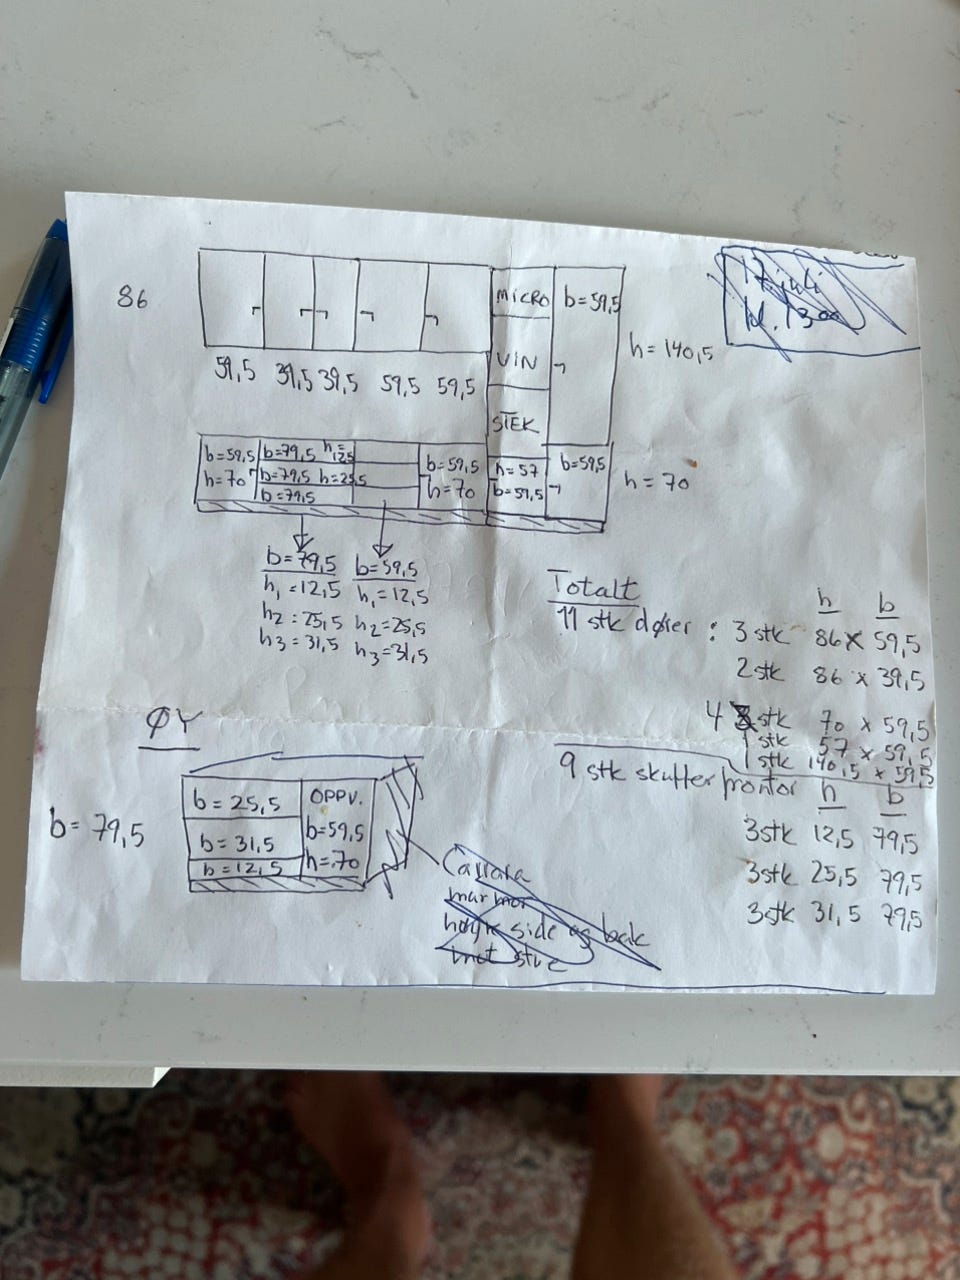 17. juli
kl. 1300
86
59,5 39,5 39,5 59,5 59,5
MICRO
VIN
STEK
b=59,5
h=140,5
b=59,5
h=70
b=79,5 h=12,5
b=79,5 h=25,5
b=79,5
b=59,5
h=70
h=57
b=59,5
b=59,5
h=70
b=79,5
h₁=12,5
h2=25,5
h3=31,5
b=59,5
h₁=12,5
h2=25,5
h3=31,5
Totalt
11 stk dører :
h b
3 stk 86 x 59,5
2 stk 86 x 39,5
4 stk 70 x 59,5
1 stk 57 x 59,5
1 stk 140,5 x 59,5
9 stk skuffer frontor
h b
3stk 12,5 79,5
3stk 25,5 79,5
3stk 31,5 79,5
ØY
b=79,5
b=25,5
b=31,5
b=12,5
OPPV.
b=59,5
h=70
Carrara
marmor
høyre side og bak
mot stue